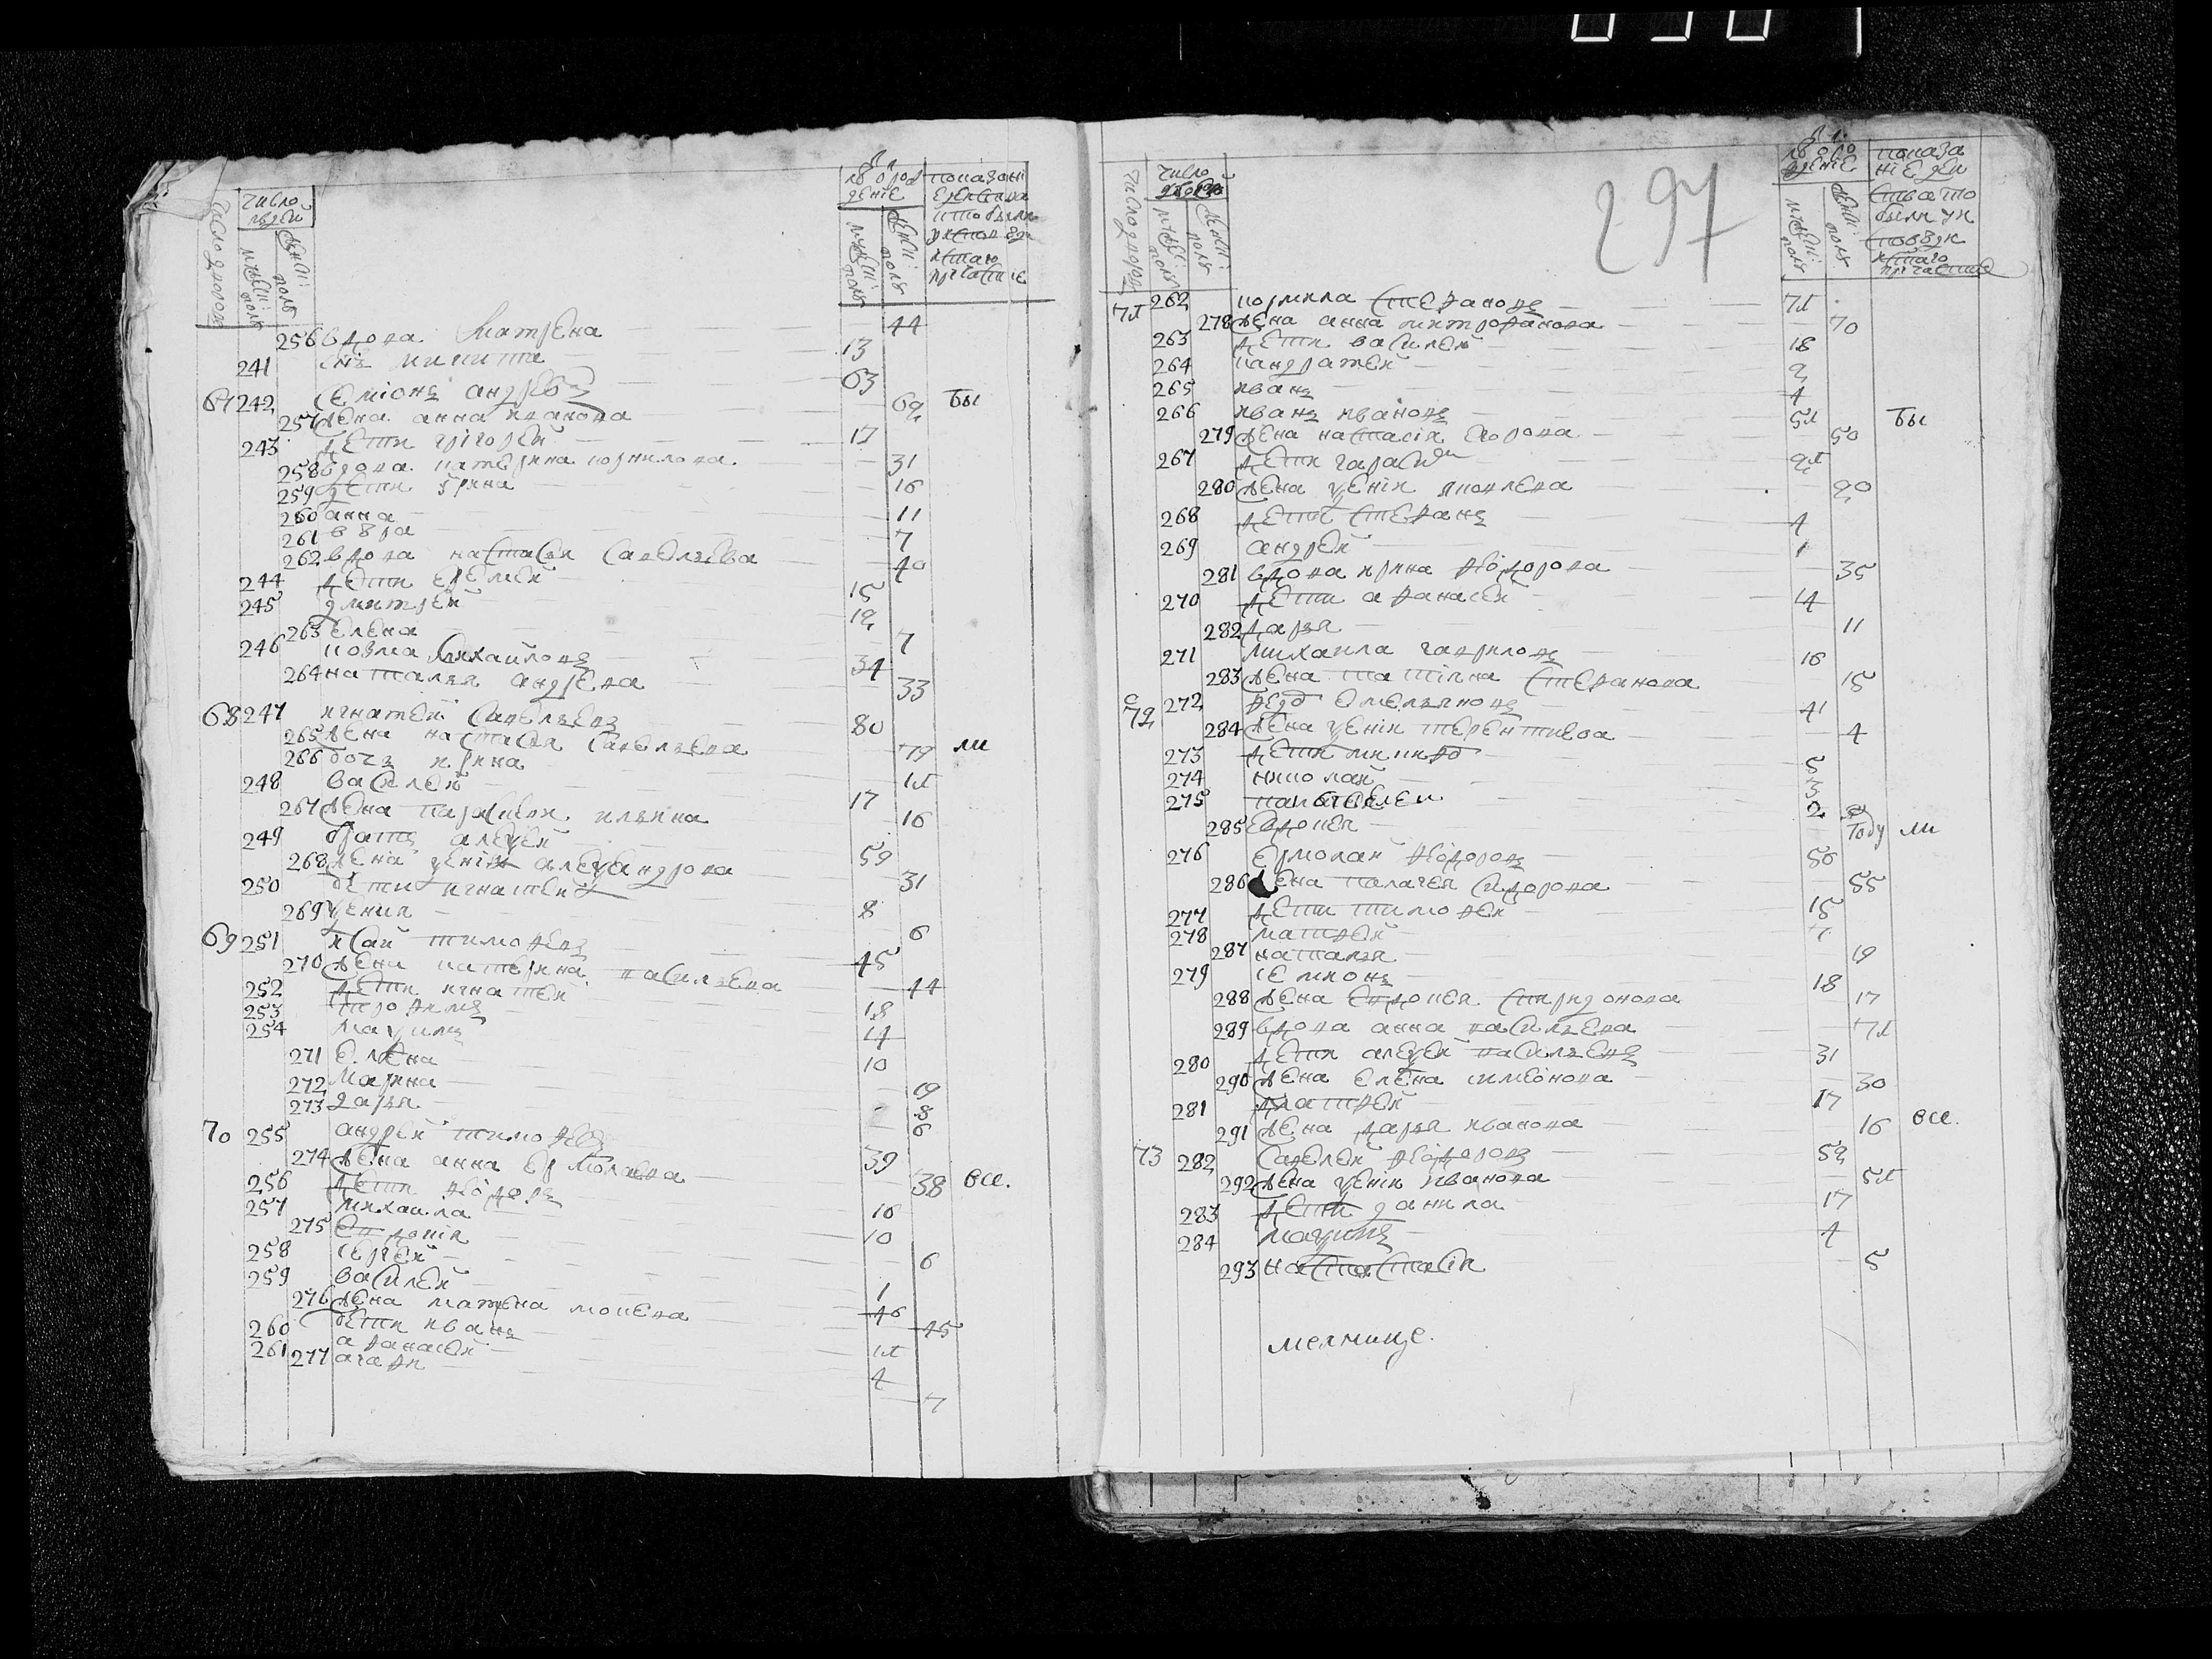 число дворов
число людей
мужеск: полу
женск: полу
лѣ
во рож
дение
мужеск: полу
женск: полу
показані
256 вдова Матрена — 44
241 снъ никита — 13
67 242 Семіонъ андревъ — 63
257 жена анна иванова — 62 бы
243 дети григорей — 17
258 вдова катерина корнилова — 31
259 дети ѯрина — 16
260 анна — 11
261 вѣра — 7
262 вдова настася савельева — 40
244 дети еремей — 15
245 дмитрей — 12
263 елена — 7
246 козма Михайловъ — 34
264 наталья андрева — 33
68 247 игнатей савельевъ — 80
265 жена настася савельева — 79 ли
266 дочь ирина — 18
248 василей — 17
267 жена парасковя ильина — 16
249 братъ алеѯей — 59
268 жена ѯенія алеѯандрова — 31
250 дети игнатей — 8
269 ѯения — 6
69 251 исай тимофевъ — 45
270 жена катерина васильева — 44
252 дети игнатей — 18
253 трофимъ — 14
254 маѯимъ — 10
271 елена — 19
272 марина — 8
273 дарья — 6
70 255 андрей тимофевъ — 39
274 жена анна ермолаева — 38 все.
256 дети фѣодоръ — 16
257 михаила — 10
275 евдокія — 6
258 сергей — 1
259 василей — 46
276 жена матрена мокева — 45
260 дети иванъ — 18
261 афанасей — 4
277 агафя — 7
297
число дворов
число
мужеск: полу
женск: полу
лѣ
во ро
ждение
мужеск: полу
женск: полу
показа
ніе дей
ства кто
были у и
споведи
и стаго
причастия
71 262 кормила стефановъ — 71
278 жена анна митрофанова — 70
263 дети василей — 18
264 кандратей — 9
265 иванъ — 4
266 иванъ ивановъ — 51 бы
279 жена настасія егорова — 50
267 дети гарасим
280 жена ѯенія яковлева — 20
268 дети стефанъ — 4
269 андрей — 1
281 вдова ирина фѣодорова — 35
270 дети афанасей — 14
282 дарья — 11
271 михаила гавриловъ — 16
283 жена татіяна стефанова — 15
72 272 емельяновъ — 41
284 жена ѯенія терентиева — 4
273 дети никифо — 5
274 николай — 3
275 пантелей — 2
285 евдокея — году ли
276 ермолай фѣодоровъ — 56
286 жена палагея сидорова — 55
277 дети тимофей — 15
278 матфей — 7
287 наталя — 19
279 семионъ — 18
288 жена евдокея спиридонова — 17
289 вдова анна васильева — 71
280 дети алеѯей васильевъ — 31
290 жена елена симѣонова — 30
281 матфей — 17
291 жена дарья иванова — 16 все.
73 282 савелей фѣодоровъ — 52
292 жена ѯенія иванова — 51
283 дети данила — 17
284 маѯимъ — 4
293 настасія — 5